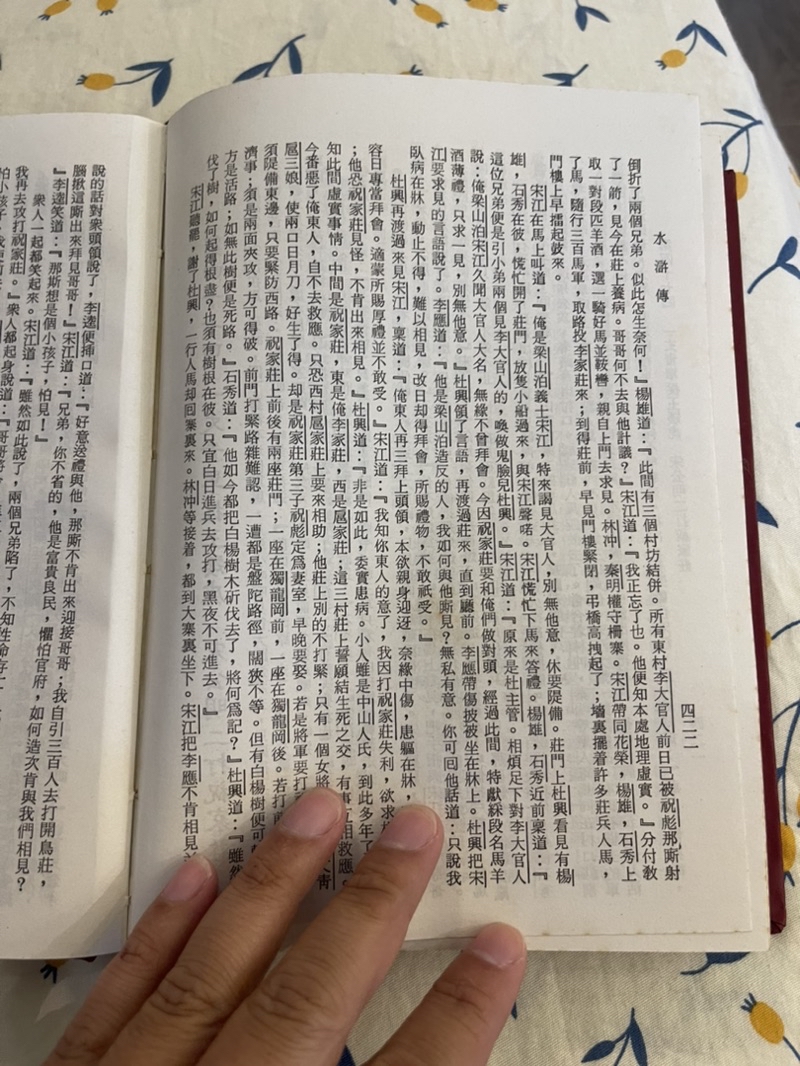 水滸傳
四二二
倒折了兩個兄弟。似此怎生奈何！』楊雄道：『此間有三個村坊結併。所有東村李大官人前日已被祝彪那廝射
了一箭，見今在莊上養病。哥哥何不去與他計議？』宋江道：『我正忘了也。他便知本處地理虛實。』分付教
取一對段匹羊酒，選一騎好馬並鞍轡，親自上門去求見。林冲，秦明權守柵寨。宋江帶同花榮，楊雄，石秀上
了馬，隨行三百馬軍，取路投李家莊來；到得莊前，早見門樓緊閉，弔橋高拽起了；墻裏擺着許多莊兵人馬，
門樓上早擂起鼓來。
宋江在馬上叫道：『俺是梁山泊義士宋江，特來謁見大官人，別無他意，休要隄備。莊門上杜興看見有楊
雄，石秀在彼，慌忙開了莊門，放隻小船過來，與宋江聲喏。宋江慌忙下馬來答禮。楊雄，石秀近前稟道：『
這位兄弟便是引小弟兩個見李大官人的，喚做鬼臉兒杜興。』宋江道：『原來是杜主管。相煩足下對李大官人
說：俺梁山泊宋江久聞大官人大名，無緣不曾拜會。今因祝家莊要和俺們做對頭，經過此間，特獻綵段名馬羊
酒薄禮，只求一見，別無他意。』杜興領了言語，再渡過莊來，直到廳前。李應帶傷披被坐在牀上。杜興把宋
江要求見的言語說了。李應道：『他是梁山泊造反的人，我如何與他厮見？無私有意。你可回他話道：只說我
臥病在牀，動止不得，難以相見，改日却得拜會，所賜禮物，不敢祇受。』
杜興再渡過來見宋江，稟道：『俺東人再三拜上頭領，本欲親身迎迓，奈緣中傷，患軀在牀，
容日專當拜會。適蒙所賜厚禮並不敢受。』宋江道：『我知你東人的意了，我因打祝家莊失利，欲求
；他恐祝家莊見怪，不肯出來相見。』杜興道：『非是如此，委實患病。小人雖是中山人氏，到此多年了
知此間虛實事情。中間是祝家莊，東是俺李家莊，西是扈家莊；這三村莊上誓願結生死之交，有事互相救應。
今番惡了俺東人，自不去救應。只恐西村扈家莊上要來相助；他莊上別的不打緊；只有一個女將
扈三娘，使兩口日月刀，好生了得。却是祝家莊第三子祝彪定爲妻室，早晚要娶。若是將軍要打
須隄備東邊，只要緊防西路。祝家莊上前後有兩座莊門；一座在獨龍岡前，一座在獨龍岡後。若打
濟事；須是兩面夾攻，方可得破。前門打緊路雜難認，一遭都是盤陀路徑，闊狹不等。但有白楊樹便可
方是活路；如無此樹便是死路。』石秀道：『他如今都把白楊樹木斫伐去了，將何爲記？』杜興道：『雖然
伐了樹，如何起得根盡？也須有樹根在彼。只宜白日進兵去攻打，黑夜不可進去。』
宋江聽罷，謝了杜興，一行人馬却回寨裏來。林冲等接着，都到大寨裏坐下。宋江把李應不肯相見
說的話對衆頭領說了，李逵便挿口道：『好意送禮與他，那廝不肯出來迎接哥哥；我自引三百人去打開鳥莊，
腦揪這廝出來拜見哥哥！』宋江道：『兄弟，你不省的，他是富貴良民，懼怕官府，如何造次肯與我們相見？
』李逵笑道：『那厮想是個小孩子，怕見！』
衆人一起都笑起來。宋江道：『雖然如此說了，兩個兄弟陷了，不知性命存
我再去攻打祝家莊。』衆人都起身說道：『哥哥將
怕小孩子，